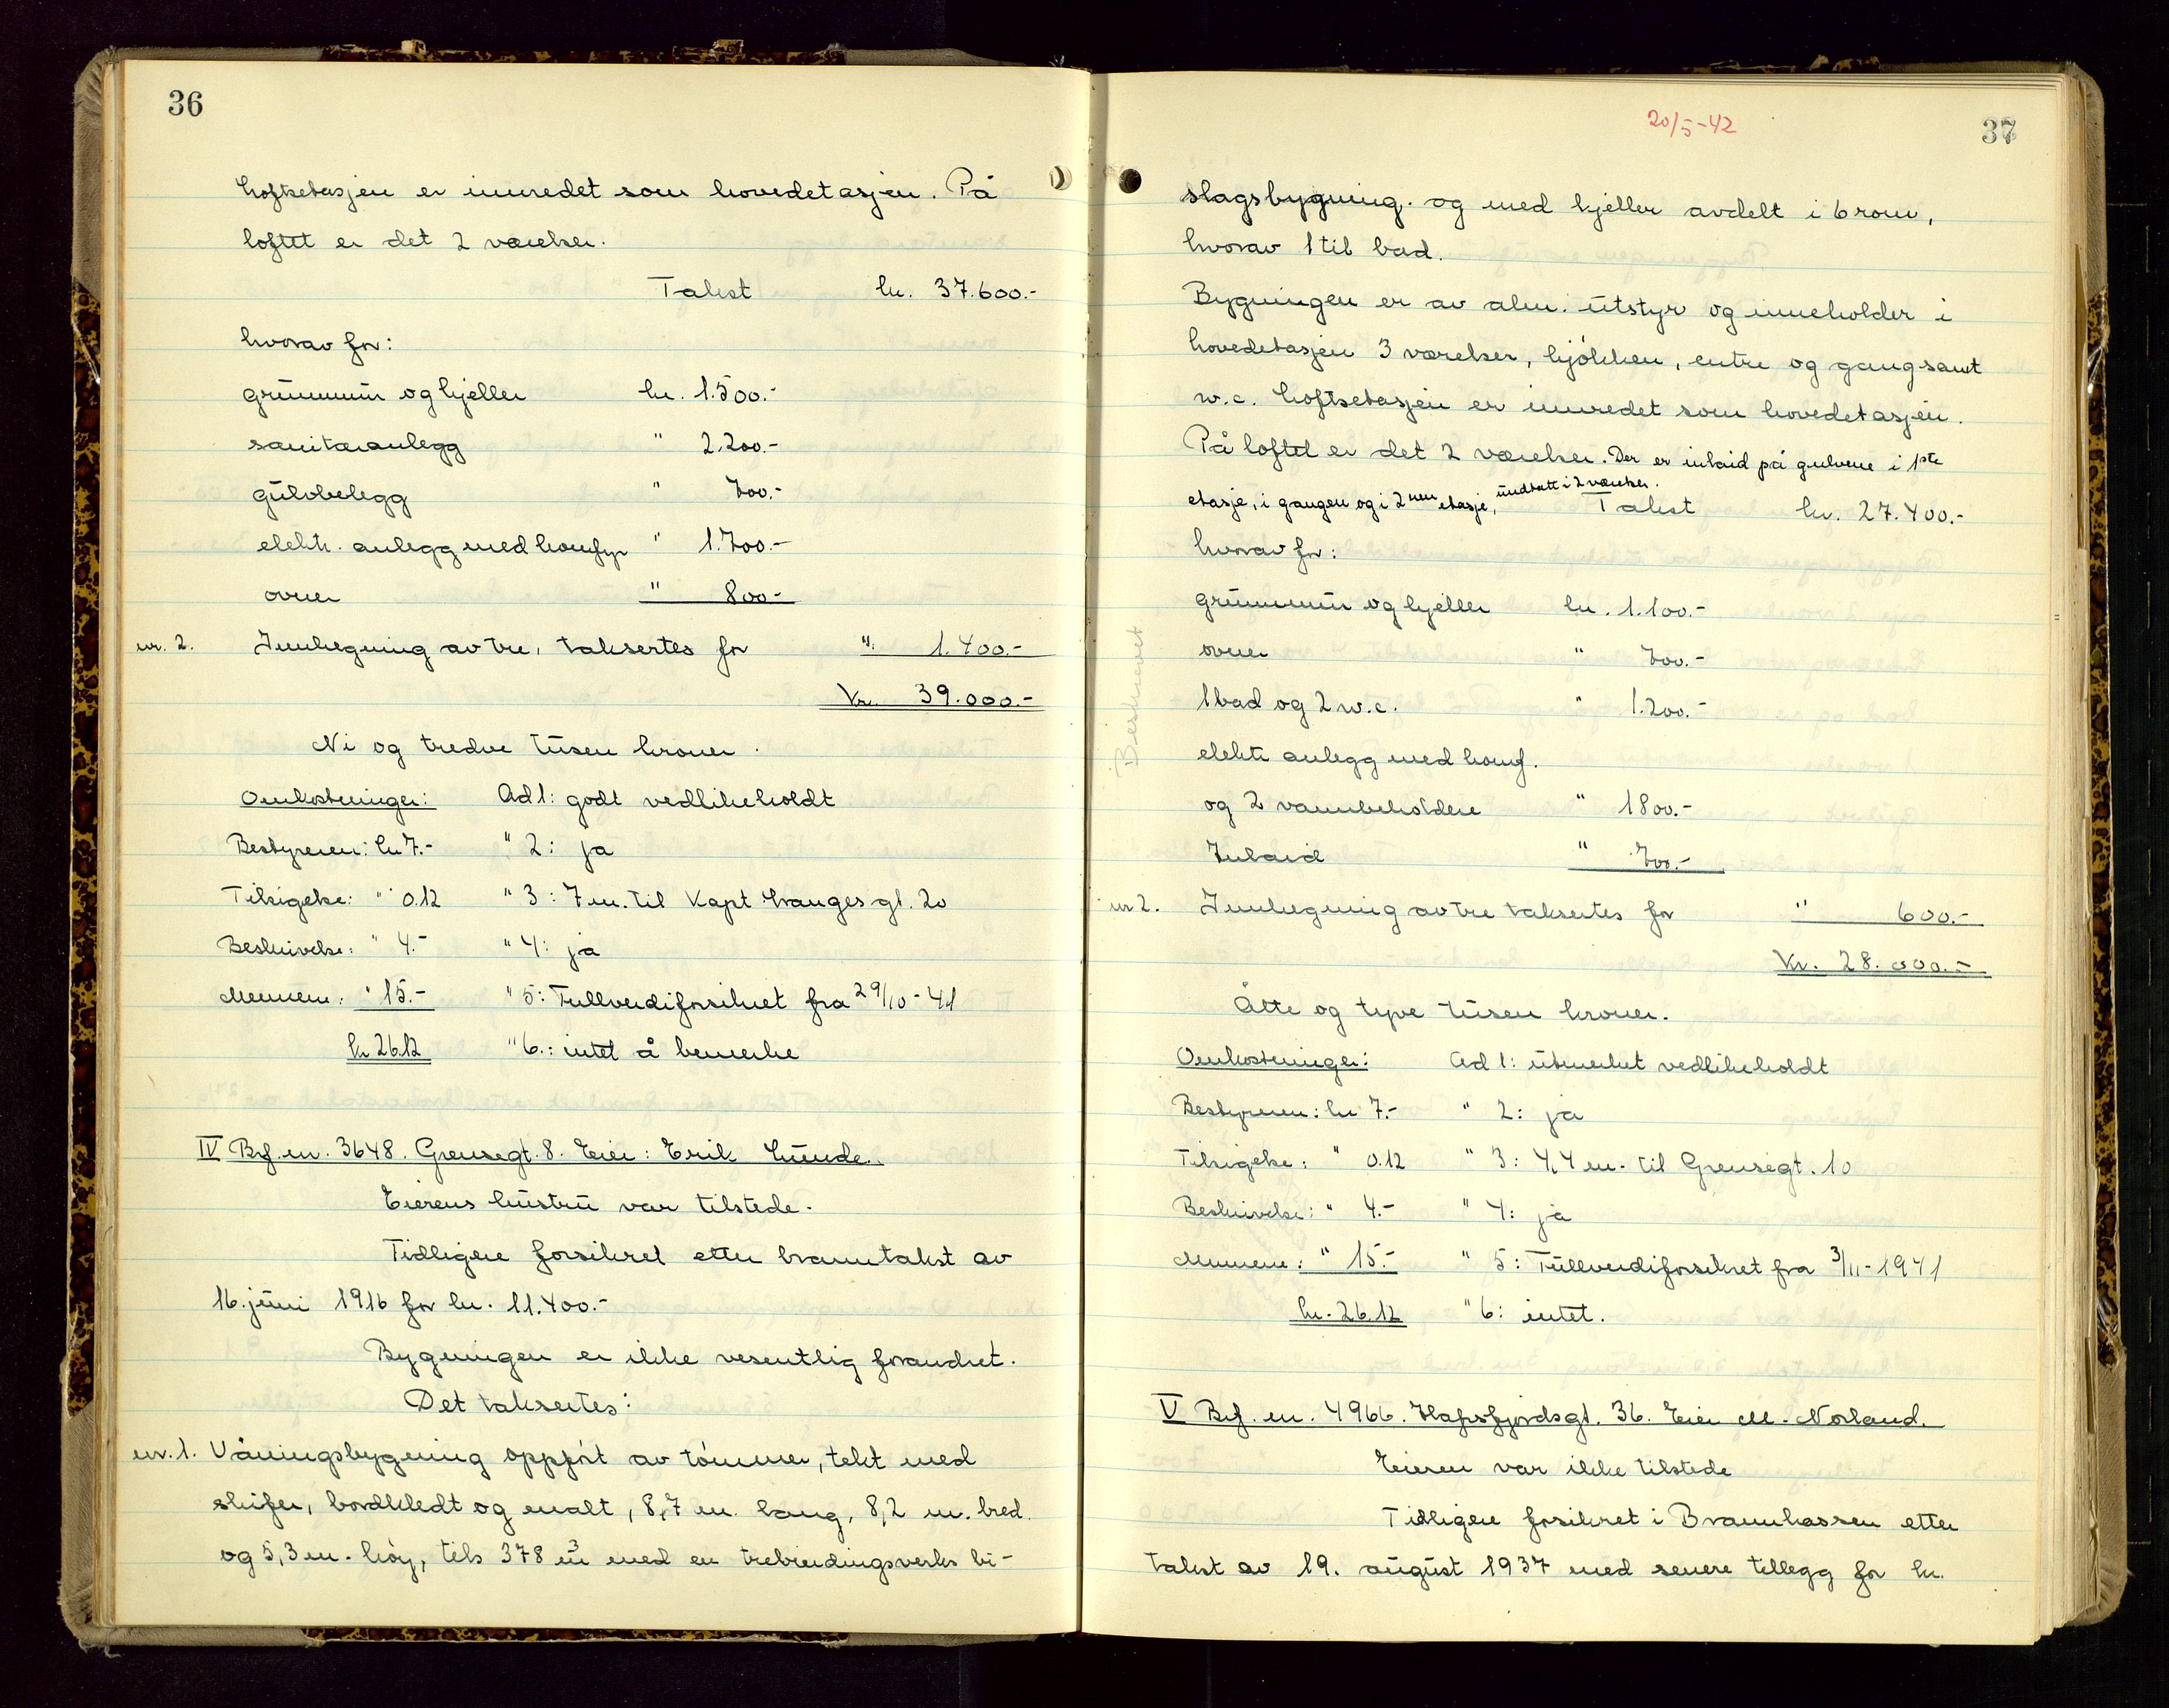 36
Loftsetasjen er innredet som hovedetasjen. På
loftet er det 2 værelser.
Takst kr. 37.600.-
hvorav for:
grunnmur og kjeller kr. 1.500.-
sanitæranlegg " 2.200.-
gulvbelegg " 700.-
elektr. anlegg med komfyr " 1.700.-
ovner " 800-
nr. 2. Innhegning av tre, taksertes for " 1.400.-
Kr. 39.000.-
Ni og tredve tusen kroner.
Omkostninger: Ad 1: godt vedlikeholdt
Bestyreren: kr 7.- " 2: ja
Tilsigelse: " 0.12 " 3: 7 m. til Kapt Langes gt. 20
Beskrivelse: " 4.- " 4: ja
Mennene: " 15.- " 5: Fullverdiforsikret fra 29/10-41
kr 26.12 " 6.: intet å bemerke
IV Brf. nr. 3648. Grensegt. 8. Eier: Erik Lunde.
Eierens hustru var tilstede.
Tidligere forsikret etter branntakst av
16. juni 1916 for kr. 11.400.-
Bygningen er ikke vesentlig forandret.
Det taksertes:
nr. 1. Våningsbygning oppført av tømmer, tekt med
skifer, bordkledt og malt, 8,7 m. lang, 8,2 m. bred
og 5,3 m. høy, tils 378 m³ med en trebindingsverks bi-
20/5-42
37
slagsbygning. og med kjeller avdelt i 6 rom,
hvorav 1 til bad.
Bygningen er av alm. utstyr og inneholder i
hovedetasjen 3 værelser, kjøkken, entre og gang samt
w.c. Loftsetasjen er innredet som hovedetasjen.
På loftet er det 2 værelser. Der er inlaid på gulvene i 1ste
etasje, i gangen og i 2nen etasje, undtatt i 2 værelser. Takst kr. 27.400.-
hvorav for:
grunnmur og kjeller kr. 1.100.-
ovner " 700.-
1 bad og 2 w.c. " 1.200.-
elektr anlegg med komf.
og 2 vannbeholdere " 1800.-
Inlaid " 700.-
Beskrevet
nr 2. Innhegning av tre taksertes for " 600.-
Kr. 28.000.-
Åtte og tyve tusen kroner.
Omkostninger: Ad 1: utmerket vedlikeholdt
Bestyreren: kr 7.- " 2: ja
Tilsigelse: " 0.12 " 3: 4,4 m. til Grensegt. 10
Beskrivelse: " 4.- " 4: ja
Mennene: " 15.- " 5: Fullverdiforsikret fra 3/11-1941
kr. 26.12 " 6: intet.
V Brf. nr. 4966. Hafrsfjordsgt. 36. Eier M. Norland.
Eieren var ikke tilstede
Tidligere forsikret i Brannkassen etter
takst av 19. august 1937 med senere tillegg for kr.